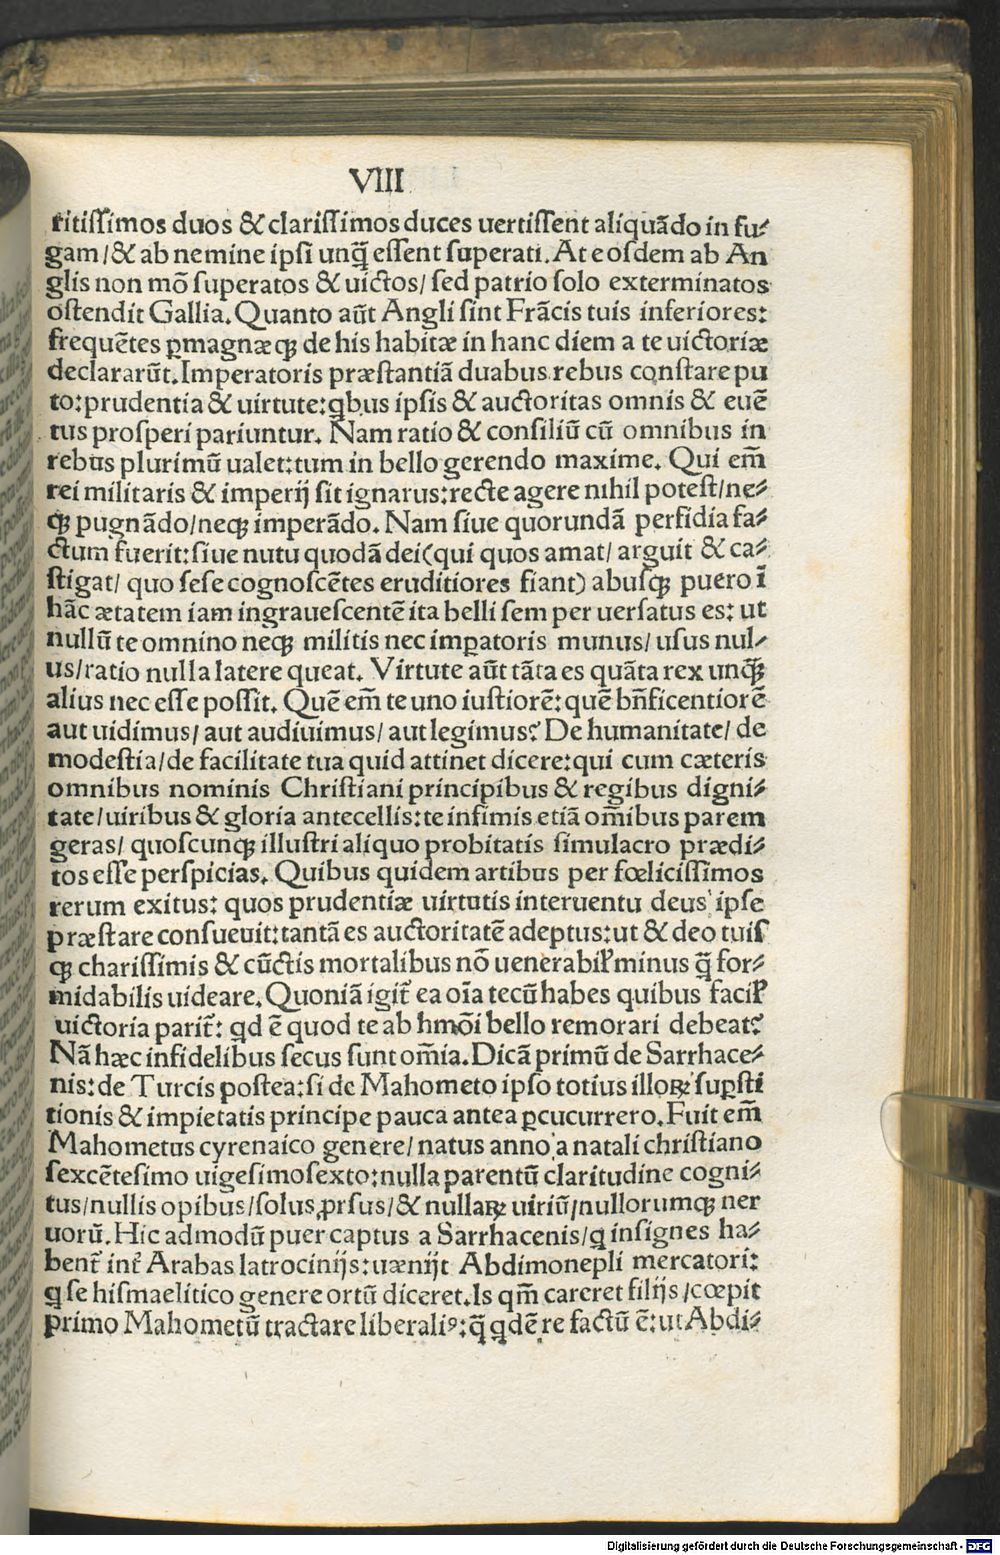 VIII
ritissimos duos & clarissimos duces uertissent aliquãdo in fu⸗
gam/& ab nemine ipsi unq̃ essent superati. At eosdem ab An
glis non mõ superatos & uictos/ sed patrio solo exterminatos
ostendit Gallia. Quanto aũt Angli sint Frãcis tuis inferiores:
frequẽtes ꝑmagnæqꝫ de his habitæ in hanc diem a te uictoriæ
declararũt. Imperatoris præstantiã duabus rebus constare pu
to: prudentia & uirtute: qbus ipsis & auctoritas omnis & euẽ
tus prosperi pariuntur. Nam ratio & consiliũ cũ omnibus in
rebus plurimũ ualet: tum in bello gerendo maxime. Qui em̃
rei militaris & imperij sit ignarus: recte agere nihil potest/ne⸗
qꝫ pugnãdo/neqꝫ imperãdo. Nam siue quorundã perfidia fa⸗
ctum fuerit: siue nutu quodã dei(qui quos amat/ arguit & ca⸗
stigat/ quo sese cognoscẽtes eruditiores fiant) abusqꝫ puero ĩ
hãc ætatem iam ingrauescentẽ ita belli sem per uersatus es: ut
nullũ te omnino neqꝫ militis nec imꝑatoris munus/ usus nul⸗
us/ratio nulla latere queat. Virtute aũt tãta es quãta rex unqꝫ̃
alius nec esse possit. Quẽ em̃ te uno iustiorẽ: quẽ bñficentiorẽ
aut uidimus/ aut audiuimus/ aut legimus? De humanitate/ de
modestia/de facilitate tua quid attinet dicere: qui cum cæteris
omnibus nominis Christiani principibus & regibus digni⸗
tate/uiribus & gloria antecellis: te infimis etiã om̃ibus parem
geras/ quoscunqꝫ illustri aliquo probitatis simulacro prædi⸗
tos esse perspicias. Quibus quidem artibus per fœlicissimos
rerum exitus: quos prudentiæ uirtutis interuentu deus ipse
præstare consueuit: tantã es auctoritatẽ adeptus: ut & deo tuis
qꝫ charissimis & cũctis mortalibus nõ uenerabil̃ minus q̃ for⸗
midabilis uideare. Quoniã igit̃ ea oĩa tecũ habes quibus facil̃
uictoria parit̃: qd ẽ quod te ab hmõi bello remorari debeat?
Nã hæc infidelibus secus sunt om̃ia. Dicã primũ de Sarrhace⸗
nis: de Turcis postea: si de Mahometo ipso totius illoꝝ suꝑsti
tionis & impietatis principe pauca antea ꝑcucurrero. Fuit em̃
Mahometus cyrenaico genere/ natus anno a natali christiano
sexcẽtesimo uigesimosexto: nulla parentũ claritudine cogni⸗
tus/nullis opibus/solus ꝓrsus/& nullaꝝ uiriũ/nullorumqꝫ ner
uorũ. Hic admodũ puer captus a Sarrhacenis/q insignes ha⸗
bent̃ int̃ Arabas latrocinijs: uænijt Abdimonepli mercatori:
q se hismaelitico genere ortũ diceret. Is qm̃ careret filijs/cœpit
primo Mahometũ tractare liberaliꝰ: q̃ qdẽ re factũ ẽ: ut Abdi⸗
Digitalisierung gefördert durch die Deutsche Forschungsgemeinschaft - DFG